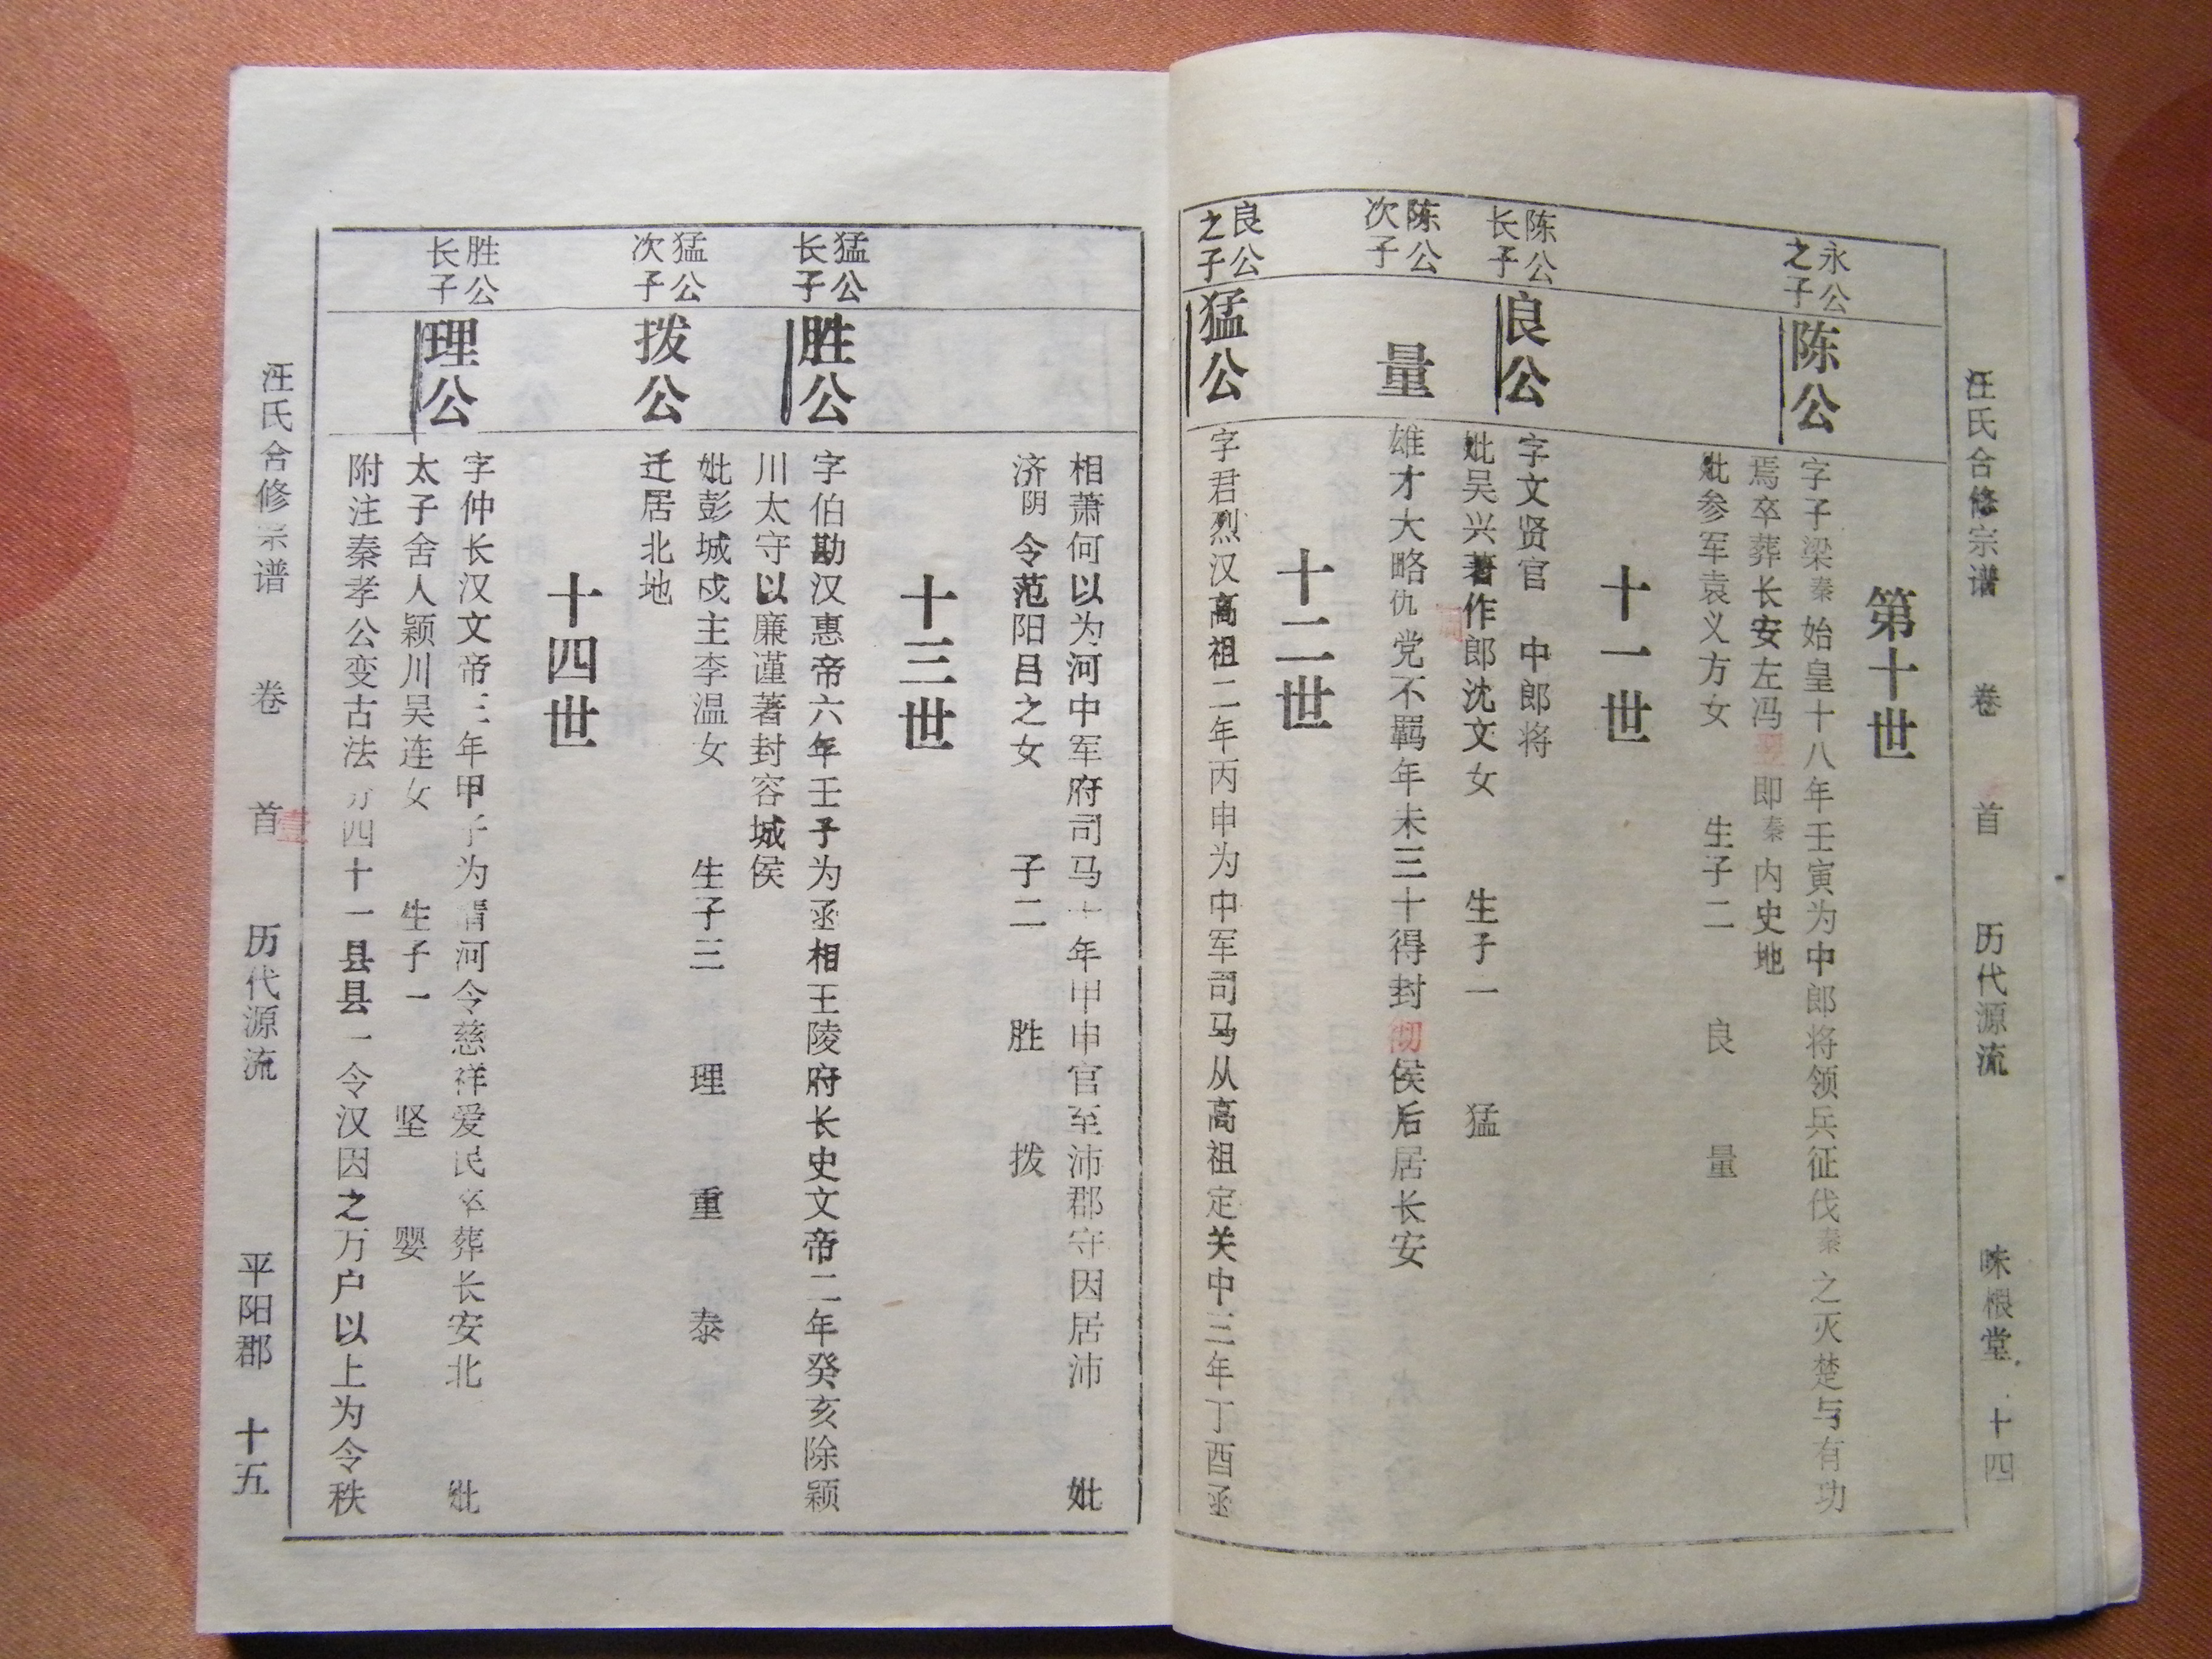 汪氏合修宗谱 卷 首 历代源流 味根堂 十四
第十世
永公
之子
陈公
字子梁秦始皇十八年壬寅为中郎将领兵征伐秦之灭楚与有功
焉卒葬长安左冯翌即秦内史地
妣参军袁义方女 生子二 良 量
十一世
陈公
长子
良公
字文贤官 中郎将
妣吴兴著作郎沈文女 生子一 猛
陈公
次子
量
雄才大略仇党不羁年未三十得封彻侯后居长安
十二世
良公
之子
猛公
字君烈汉高祖二年丙申为中军司马从高祖定关中三年丁酉丞
相萧何以为河中军府司马十年甲申官至沛郡守因居沛 妣
济阴令范阳吕之女 子二 胜 拨
十三世
猛公
长子
胜公
字伯勘汉惠帝六年壬子为丞相王陵府长史文帝二年癸亥除颖
川太守以廉谨著封容城侯
妣彭城戍主李温女 生子三 理 重 泰
猛公
次子
拨公
迁居北地
十四世
胜公
长子
理公
字仲长汉文帝三年甲子为清河令慈祥爱民卒葬长安北 妣
太子舍人颖川吴连女 生子一 坚 婴
附注秦孝公变古法 四十一县县一令汉因之万户以上为令秩
汪氏合修宗谱 卷 首 壹 历代源流 平阳郡 十五